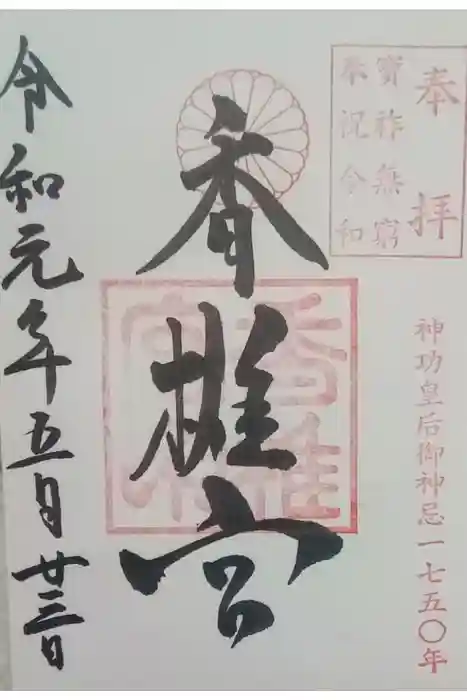 奉拝
寶祚無窮
奉祝令和
神功皇后御神忌一七五〇年
香椎宮
香椎宮印
令和元年五月廿三日